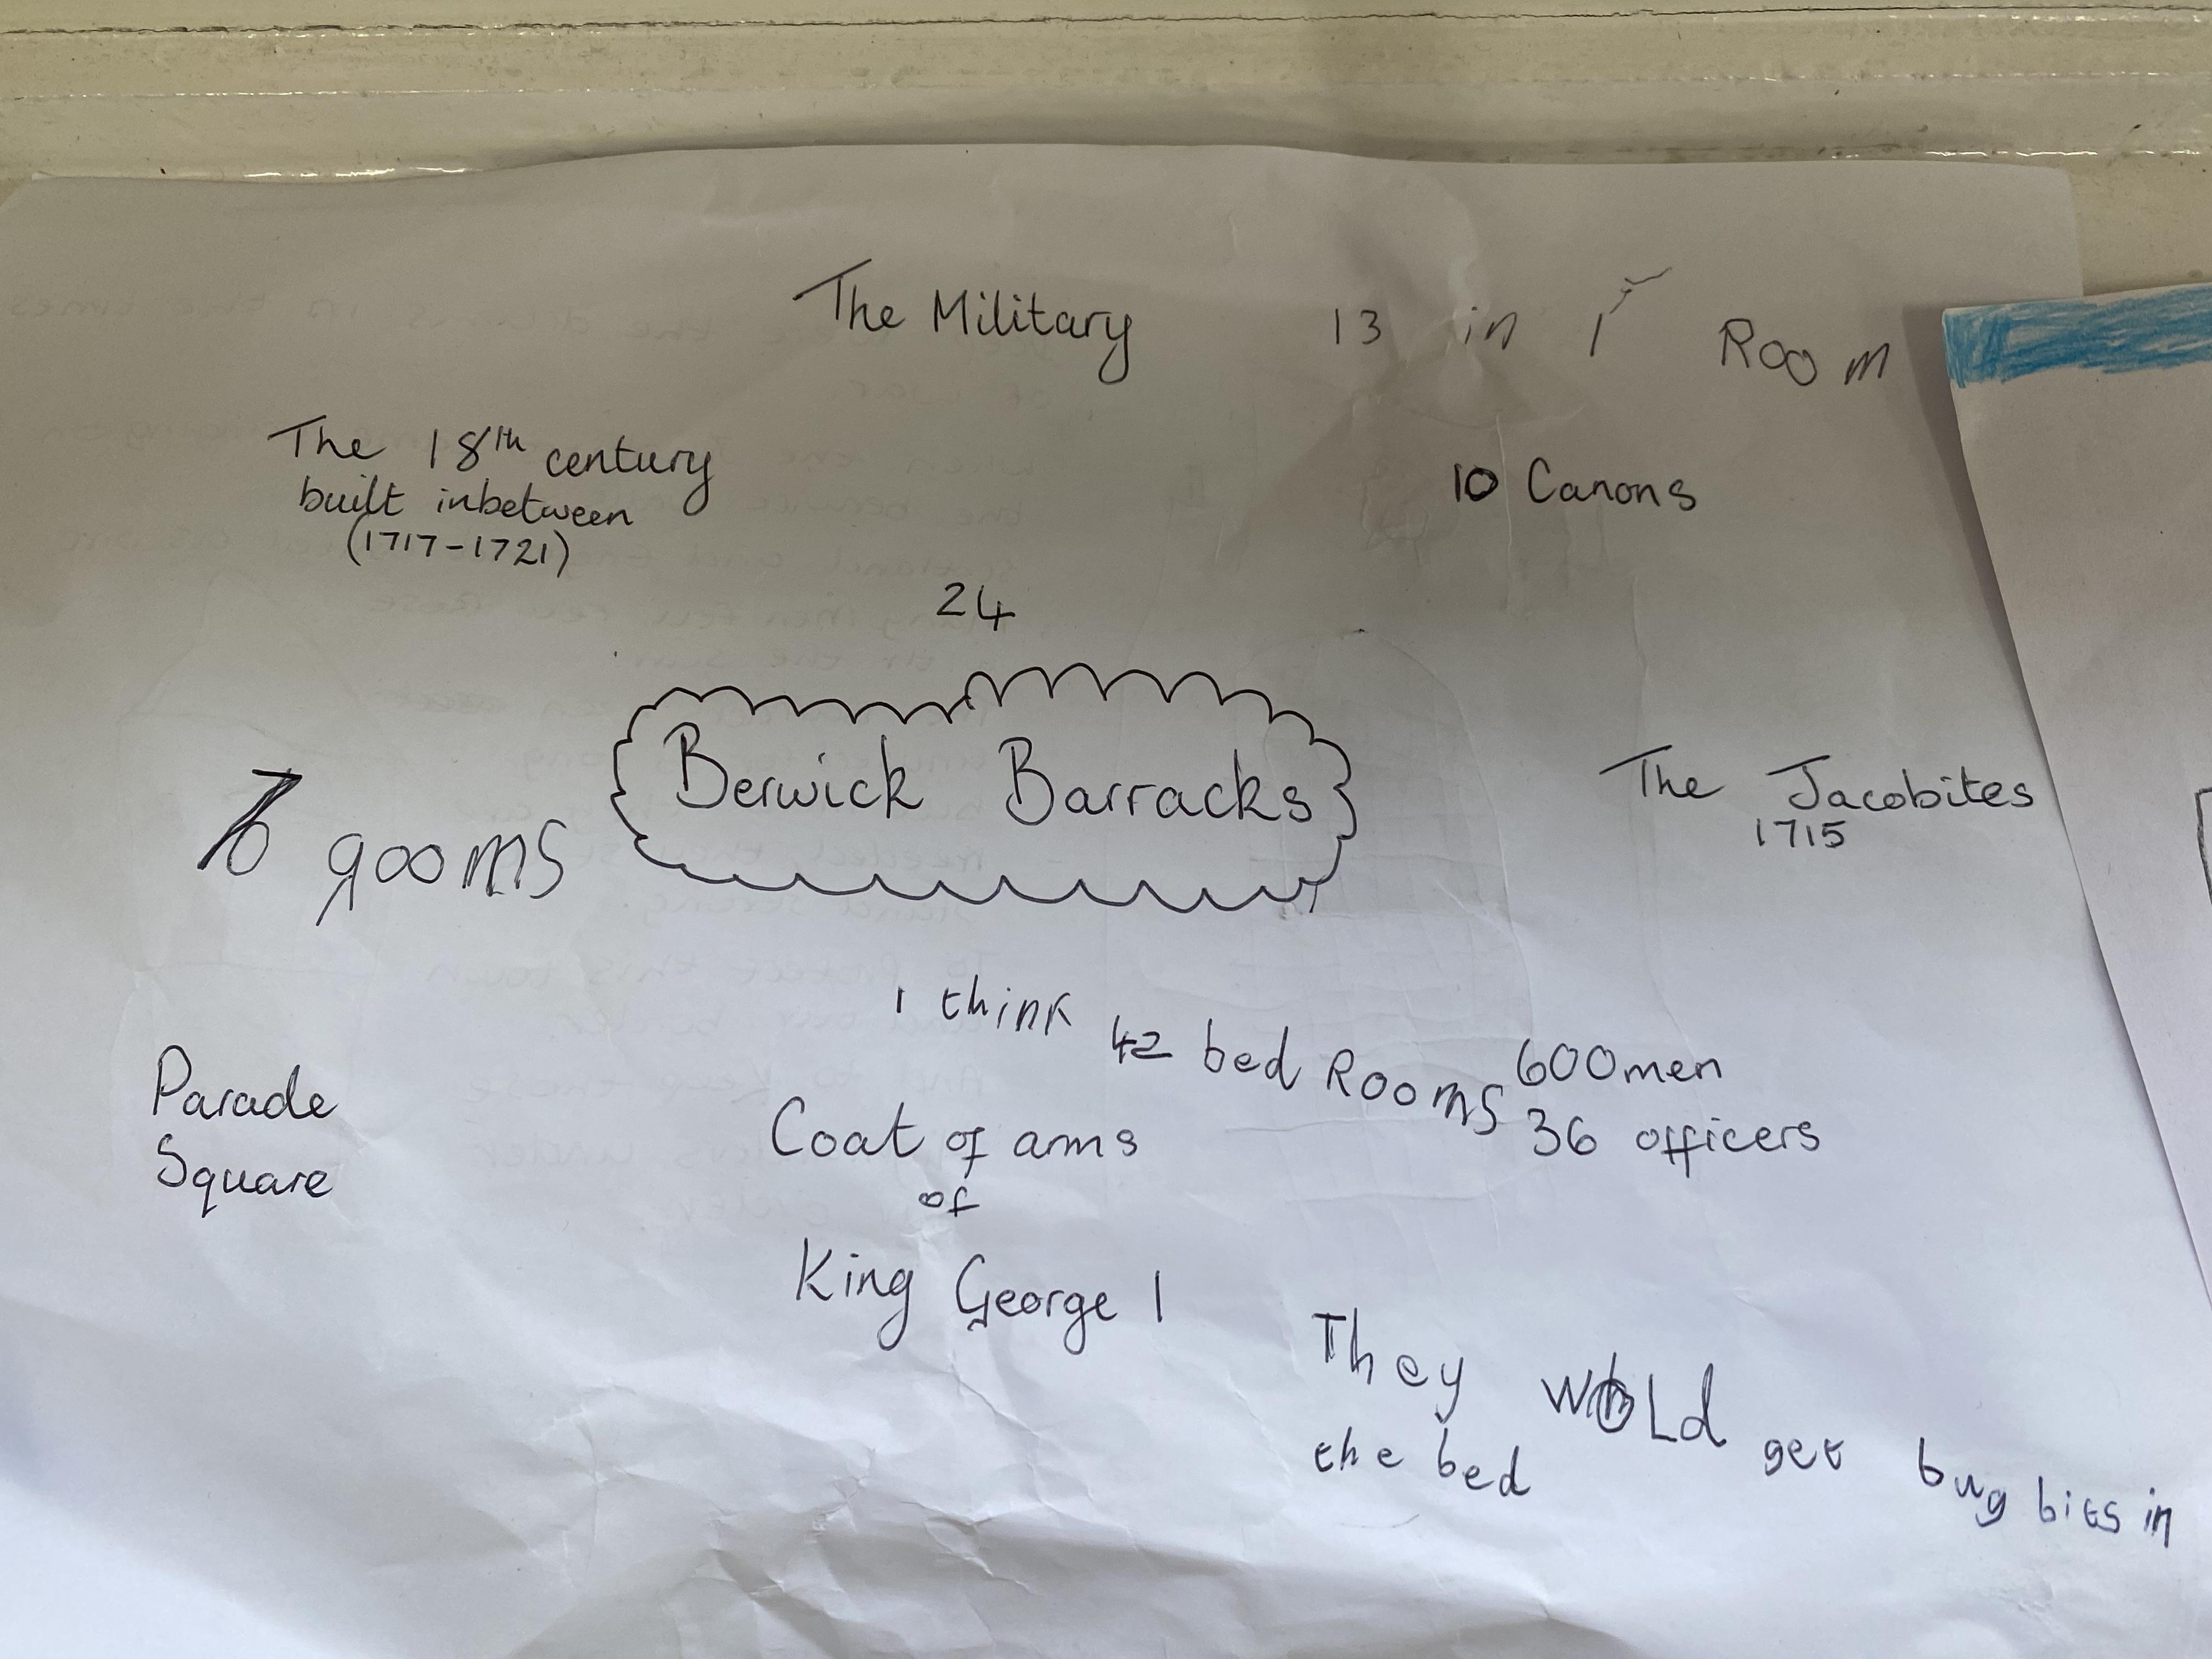 The Military
13 in 1 Room
The 18th century
built inbetween
(1717-1721)
10 Canons
24
Berwick Barracks
The Jacobites
1715
rooms
I think 42 bed Rooms
600 men
36 officers
Parade
Square
Coat of arms
of
King George I
They woLd get bug bits in
the bed